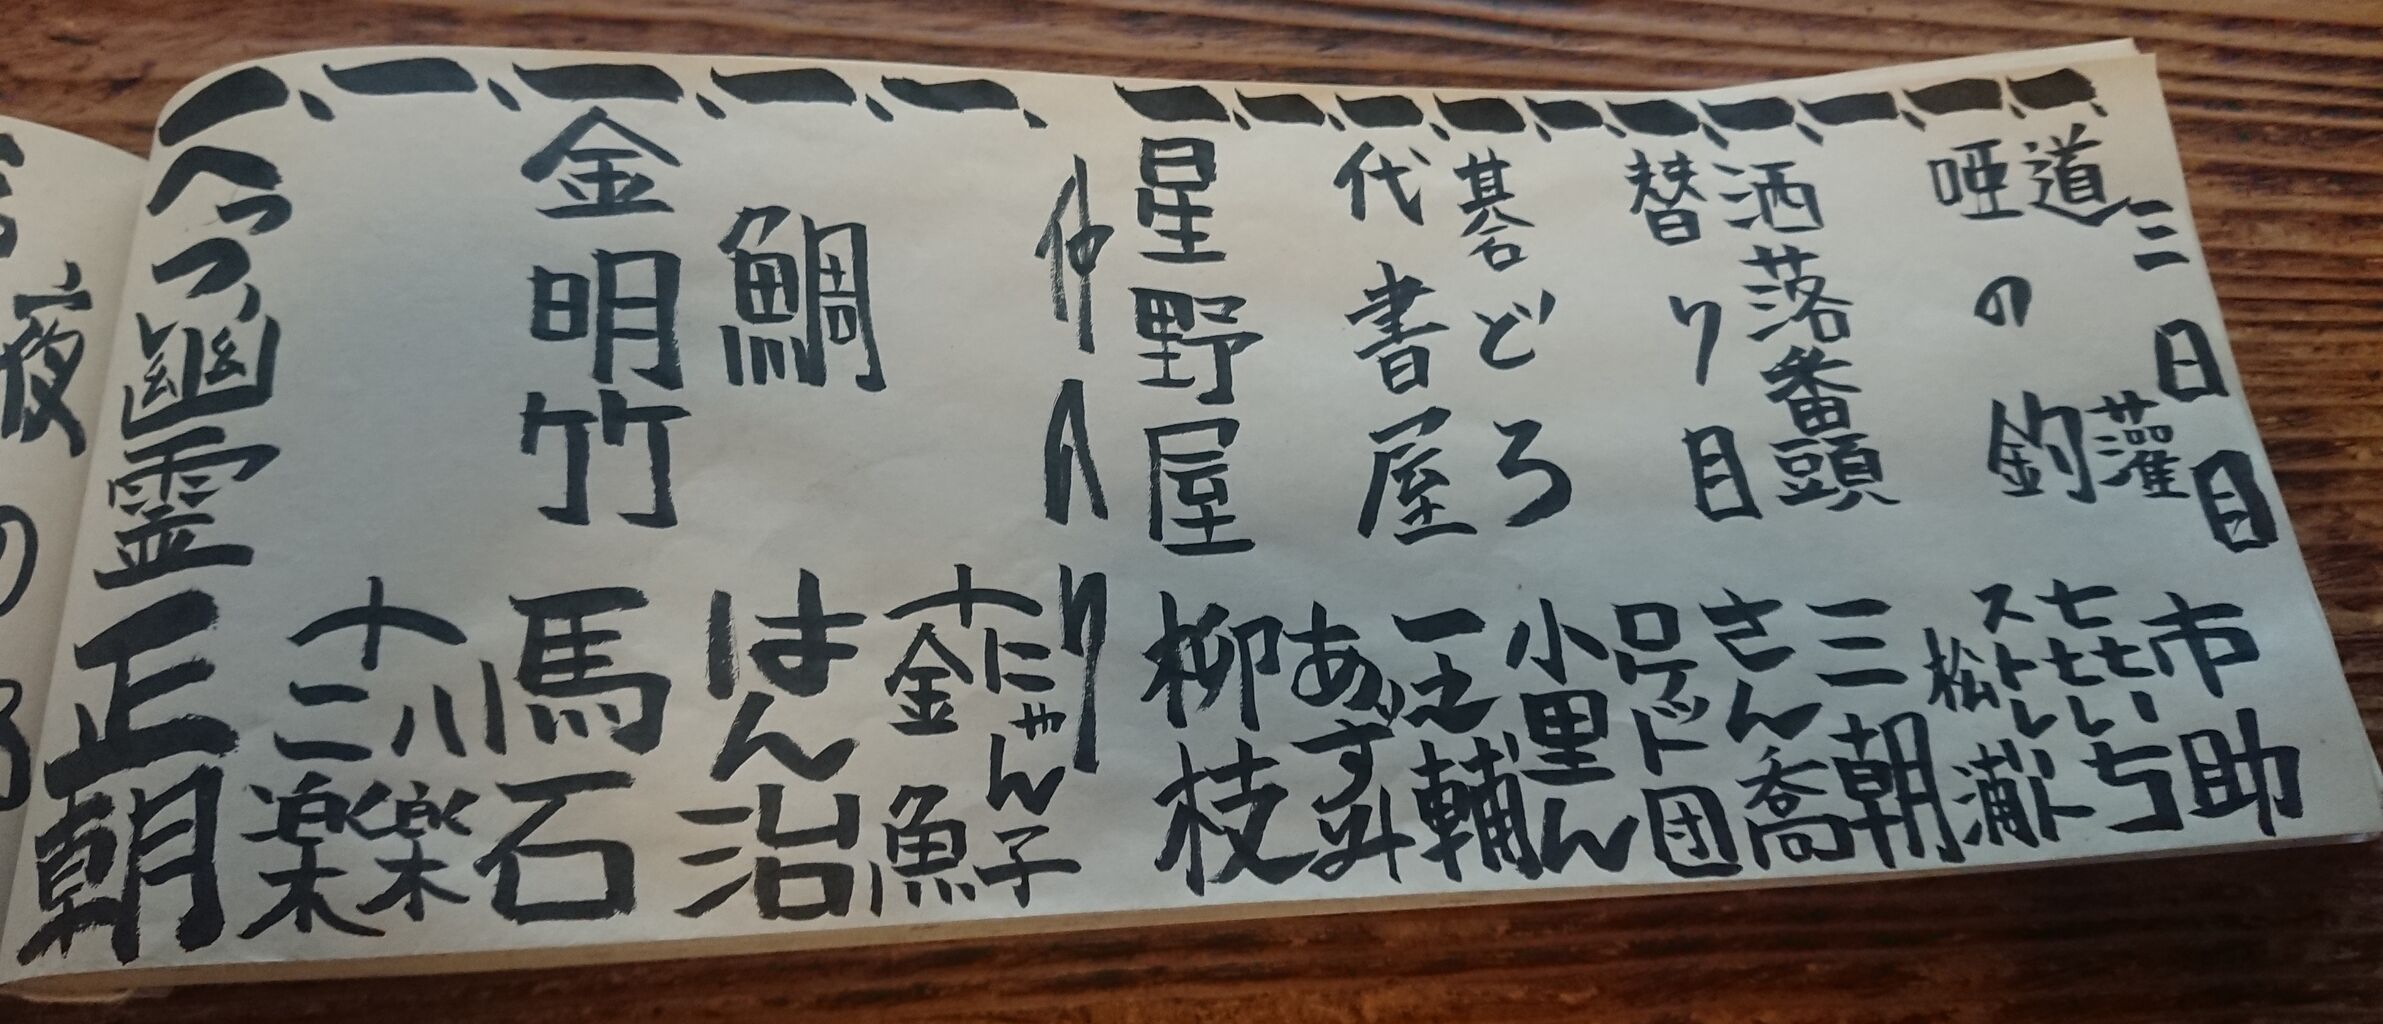 三日目
一、道灌 市助
一、唖の釣 㐂いち
一、 ストレート松浦
一、洒落番頭 三朝
一、替り目 さん喬
一、 ロケット団
一、碁どろ 小里ん
一、代書屋 一之輔
一、 あずみ
一、星野屋 柳枝
仲入り
一、 にゃん子 金魚
一、鯛 はん治
一、金明竹 馬石
一、 八楽 二楽
一、へっつい幽霊 正朝